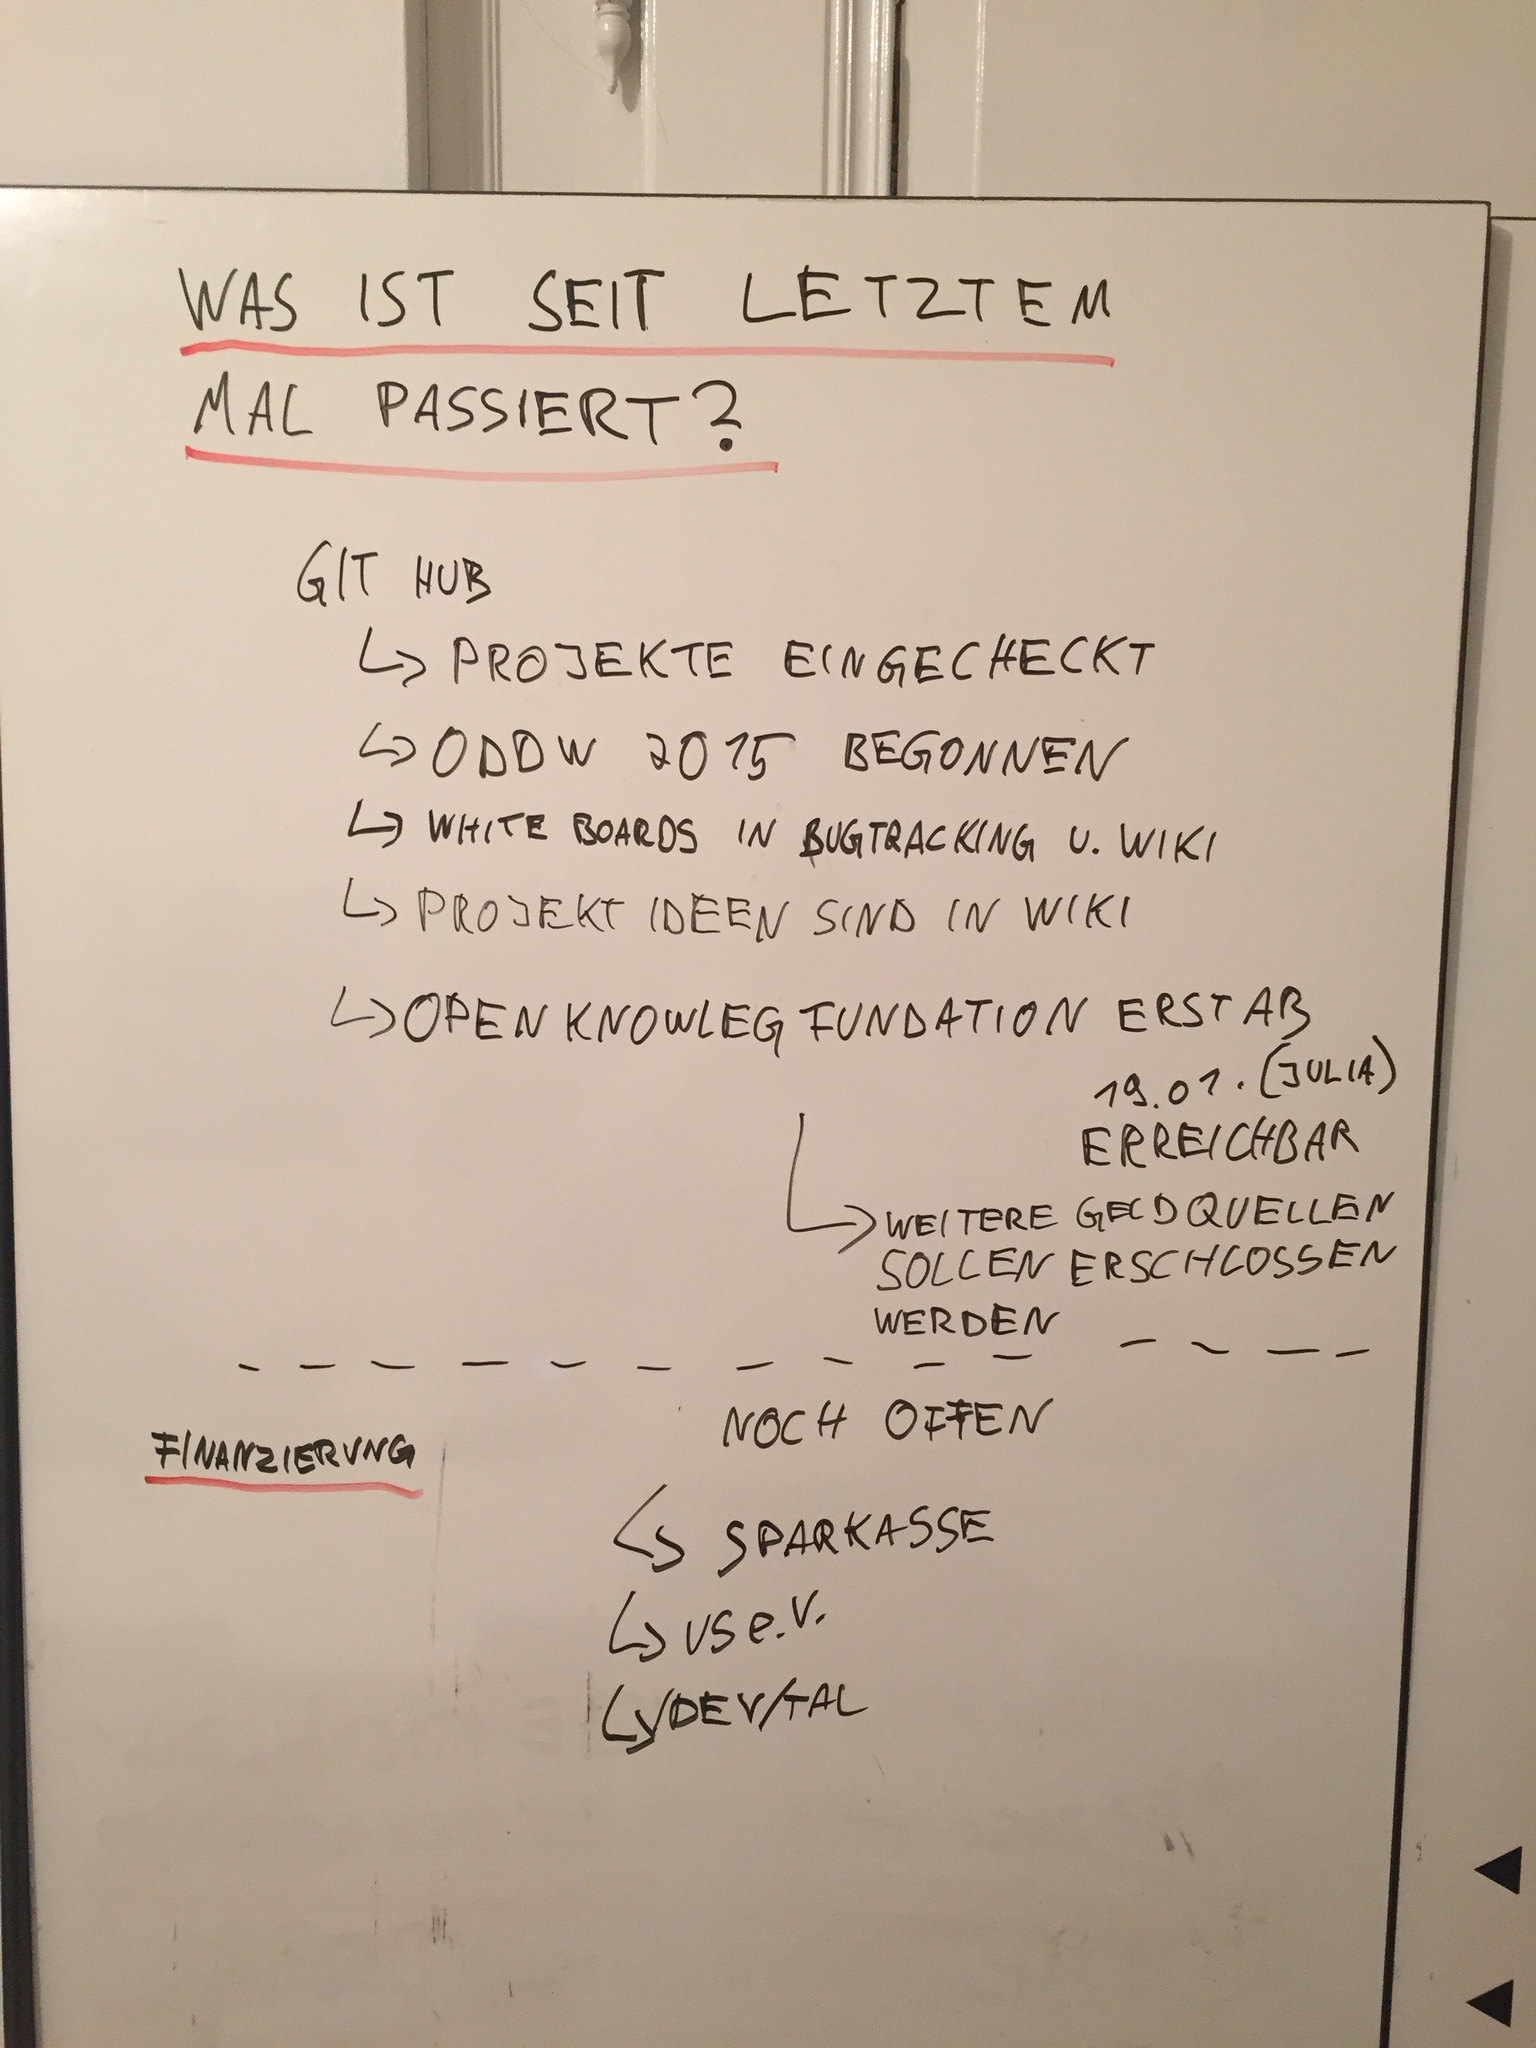 WAS IST SEIT LETZTEM
MAL PASSIERT?
GIT HUB
↳ PROJEKTE EINGECHECKT
↳ ODDW 2015 BEGONNEN
↳ WHITE BOARDS IN BUGTRACKING U. WIKI
↳ PROJEKT IDEEN SIND IN WIKI
↳ OPEN KNOWLEG FUNDATION ERST AB
19.01. (JULIA)
ERREICHBAR
↳ WEITERE GELDQUELLEN
SOLLEN ERSCHLOSSEN
WERDEN
NOCH OFFEN
FINANZIERUNG
↳ SPARKASSE
↳ VS e.V.
↳ /DEV/TAL